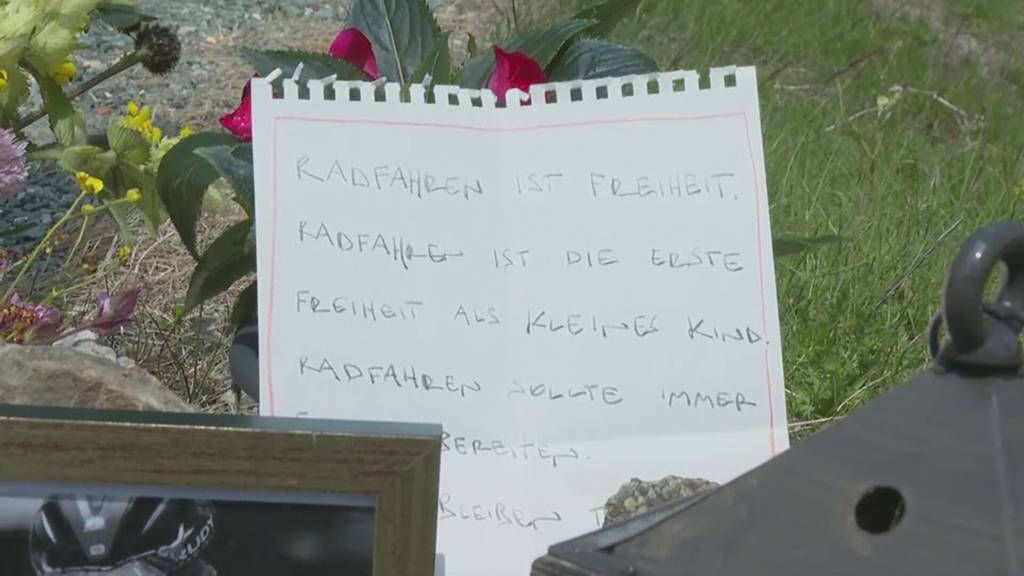 RADFAHREN IST FREIHEIT.
RADFAHREN IST DIE ERSTE
FREIHEIT ALS KLEINES KIND.
RADFAHREN SOLLTE IMMER
BEREITEN.
BLEIBEN
RUDY